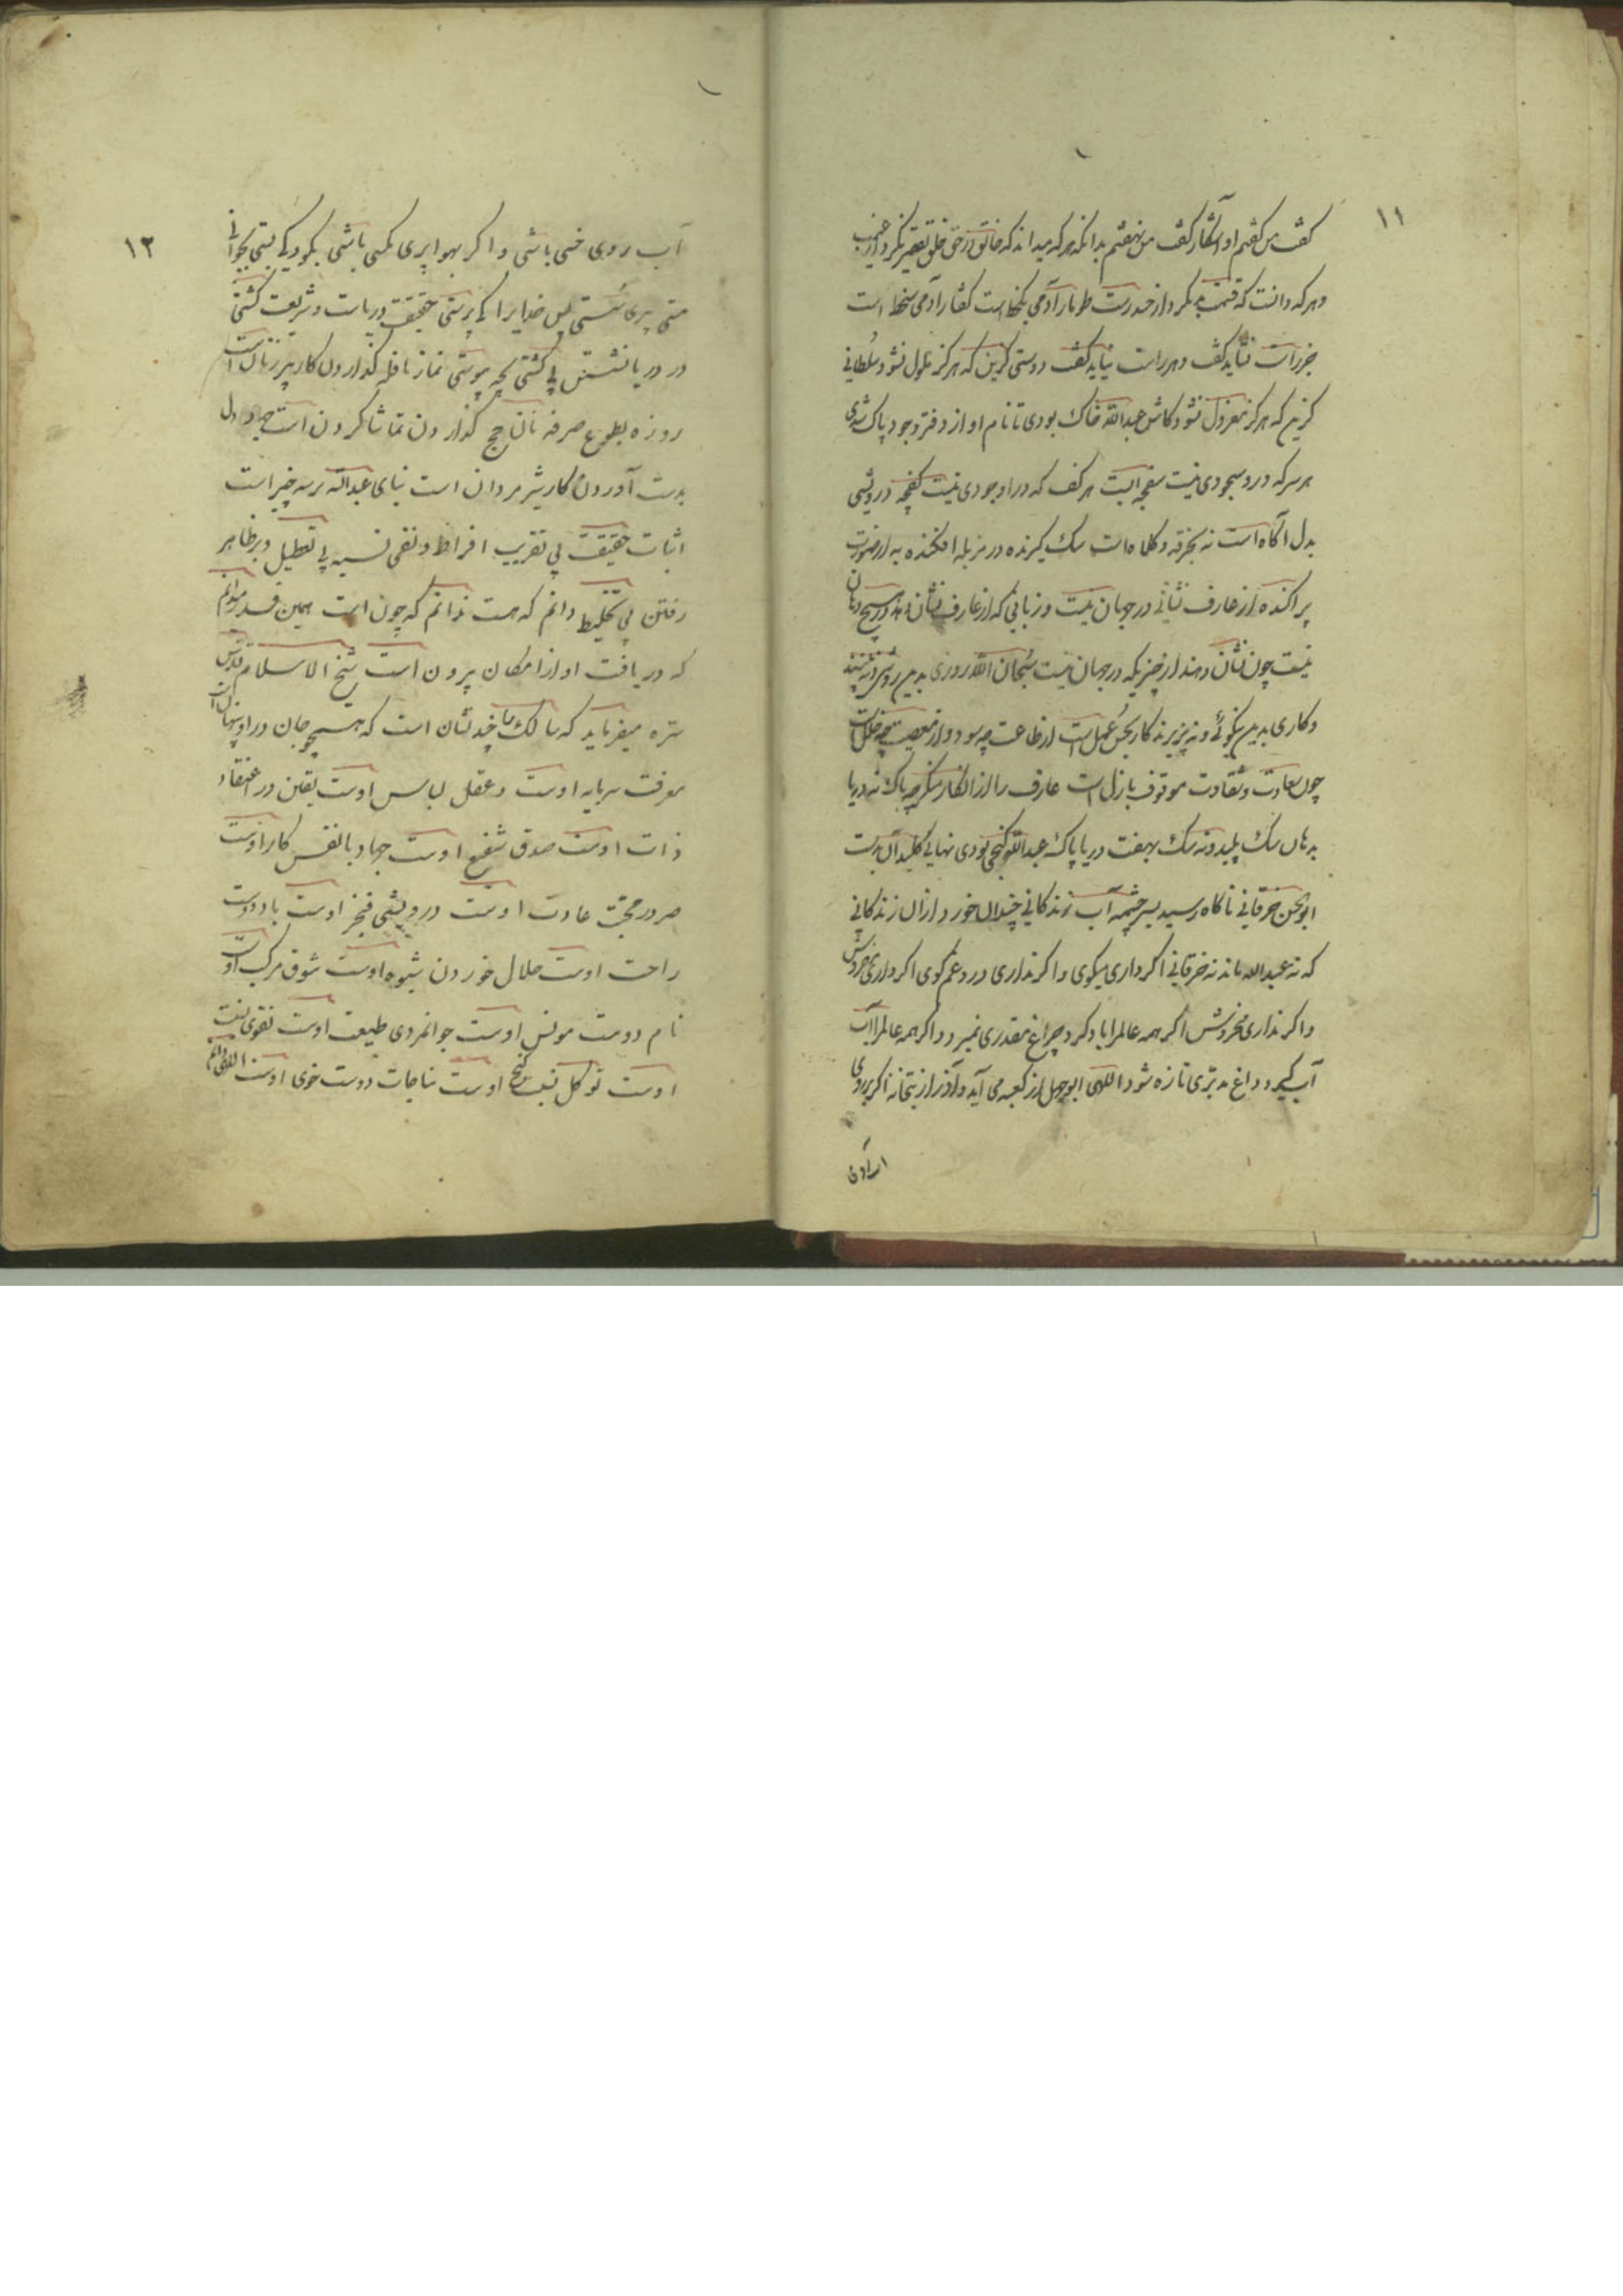 ۱۱
گفت من گفتم او آشکار گفت من نهفتم بدانکه هر که میداند که خالق در حق خلق تقصیر نکرد از غیب
و هر که دانست که قسمت بد نکرد از حسد رست طومار آدمی بخط است گفتار آدمی سخط است
جز راست نباید گفت و هر راست نباید گفت دوستی گزین که هرگز ملول نشود سلطانی
گزین که هرگز معزول نشود کاش عبدالله خاک بودی تا نام او از دفتر وجود پاک شدی
هر سر که درو سجودی نیست سفچه است هر کف که در او جودی نیست کفچه درویشی
بدل آگاه است نه بخرقه و کلاه است سگ گیرنده در مزبله افکنده به از صورت
پراکنده از عارف نشانی در جهان نیست و زبانی که از عارف نشان دهد در هیچ دهان
نیست چون نشان دهند از چیزیکه در جهان نیست سبحان الله روزی بدین روشنی و نه بینند
و کاری بدین نیکوئی و نه پزیرند کار بحسن عمل است از طاعت چه سود و از معصیت چه خلل است
چون سعادت و شقاوت موقوف بازل است عارف را از انکار منکر چه باک نه دریا
بدهان سگ پلید و نه سگ بهفت دریا پاک عبدالله گنجی بودی نهانی کلید آن بدست
ابوالحسن خرقانی ناگاه رسید بسر چشمه آب زندگانی چندان خورد از آن زندگانی
که نه عبدالله ماند نه خرقانی اگر داری میگوی و اگر نداری دروغ مگوی اگر داری مخروش
و اگر نداری مخروش اگر همه عالم را باد گیرد چراغ مقدری نمیرد و اگر همه عالم را آب
آب گیرد داغ مدبری تازه شود الهی ابوجهل از کعبه می آید و آذر از بتخانه اگر بر روی
۱۲
آب روی خسی باشی و اگر بهوا پری مگسی باشی
متی پرستی پس خدایرا کی پرستی حقیقت دریاست و شریعت کشتی
در دریا نشستن بی کشتی نماز نافله گذاردن کار پیر زنان است
روزه بطوع صرفه نان حج گذاردن تماشا کردن است دل
بدست آوردن کار شیر مردان است بنای عبدالله بر سه چیز است
اثبات حقیقت بی تقریب افراط و نفی تشبیه بی تعطیل و بر ظاهر
رفتن بی تخلیط دانم که هست ندانم که چون است همین قدر میدانم
که دریافت او از امکان برون است شیخ الاسلام قدس
سره میفرماید که سالک را چند نشان است که همچو جان در او پنهان است
معرفت سرمایه اوست و عقل لباس اوست یقین در اعتقاد
ذات اوست صدق شفیع اوست جهاد با نفس کار اوست
محبت عادت اوست درویشی فخر اوست یاد دوست
راحت اوست حلال خوردن شیوه اوست شوق مرکب اوست
نام دوست مونس اوست جوانمردی طبیعت اوست تقوی
اوست توکل گنج اوست مناجات دوست خوی اوست